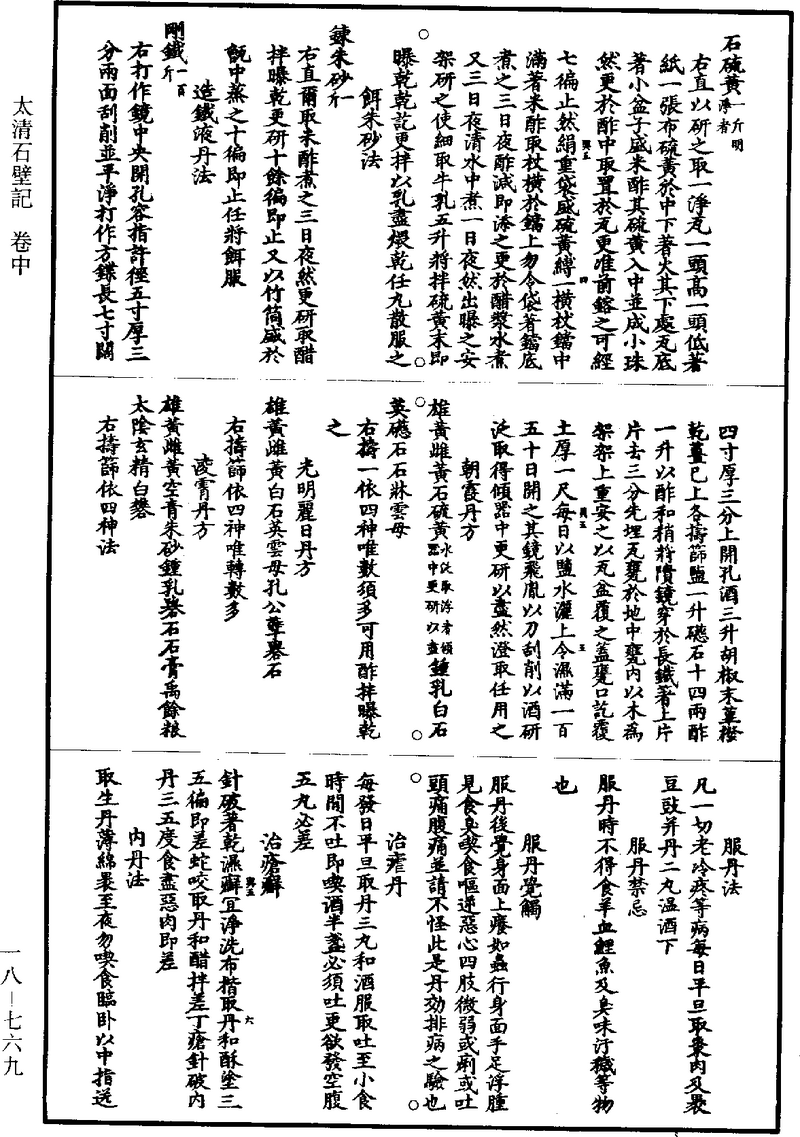 太清石壁記　卷中
石硫黃一斤明淨者
右直以研之取一淨瓦一頭高一頭低著
紙一張布硫黃於中下著火其下處瓦底
著小盆子盛米酢其硫黃入中並成小珠
然更於酢中取置於瓦更准前鎔之可經
七徧止然絹重袋盛硫黃縛一橫杖鐺中
滿著米酢取杖橫於鐺上勿令袋著鐺底
煮之三日夜酢減即添之更於醋漿水煮
又三日夜清水中煮一日夜然出曝之安
架研之使細取牛乳五升將拌硫黃末即
曝乾乾訖更拌以乳盡煖乾任丸散服之
餌朱砂法
鍊朱砂一斤
右直爾取米酢煮之三日夜然更研取醋
拌曝乾更研十餘徧即止又以竹筒盛於
甑中蒸之十徧即止任將餌服
造鐵液丹法
剛鐵一百斤
右打作鏡中央開孔容指許徑五寸厚三
分兩面刮削並平淨打作方鍱長七寸闊
四寸厚三分上開孔酒三升胡椒末蓽撥
乾薑已上各擣篩鹽一升礠石十四兩酢
一升以酢和稍將隤鏡穿於長鐵著上片
片去三分先埋瓦甕於地中甕內以木為
架架上重安之以瓦盆覆之蓋甕口訖覆
土厚一尺每日以鹽水灑上令濕滿一百
五十日開之其鏡飛胤以刀刮削以酒研
泛取得傾器中更研以盡然澄取任用之
朝霞丹方
雄黃雌黃石硫黃水泛取浮者傾器中更研以盡鍾乳白石
英礠石石牀雲母
右擣一依四神唯數須多可用酢拌曝乾
之
光明麗日丹方
雄黃雌黃白石英雲母孔公孽礜石
右擣篩依四神唯轉數多
凌霄丹方
雄黃雌黃空青朱砂鍾乳礜石石膏禹餘粮
太陰玄精白礬
右擣篩依四神法
服丹法
凡一切老冷疼等病每日平旦取棗肉及裹
豆豉并丹二丸溫酒下
服丹禁忌
服丹時不得食羊血鯉魚及臭味汙穢等物
也
服丹覺觸
服丹後覺身面上癢如蟲行身面手足浮腫
見食臭喫食嘔逆惡心四肢微弱或痢或吐
頭痛腹痛並請不怪此是丹効排病之驗也
治瘧丹
每發日平旦取丹三丸和酒服取吐至小食
時間不吐即喫酒半盞必須吐更欲發空腹
五丸必差
治瘡癬
針破著乾濕癬宜淨洗布揩取丹和酥塗三
五徧即差蛇咬取丹和醋拌差丁瘡針破內
丹三五度食盡惡肉即差
內丹法
取生丹薄綿裹至夜勿喫食臨臥以中指送
一八—七六九